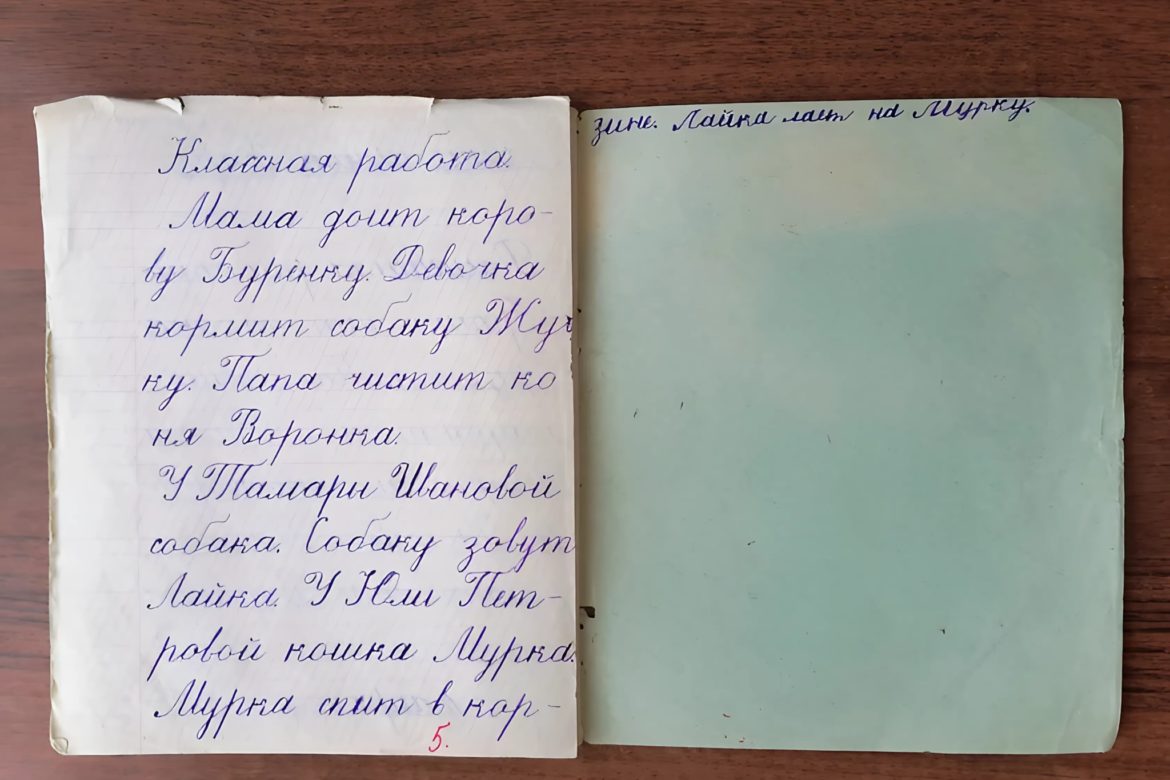 Классная работа.
Мама доит коро-
ву Буренку. Девочка
кормит собаку Жуч
ку. Папа чистит ко
ня Воронка.
У Тамары Шановой
собака. Собаку зовут
Лайка. У Юли Пет-
ровой кошка Мурка.
Мурка спит в кор-
5.
зине. Лайка лает на Мурку.